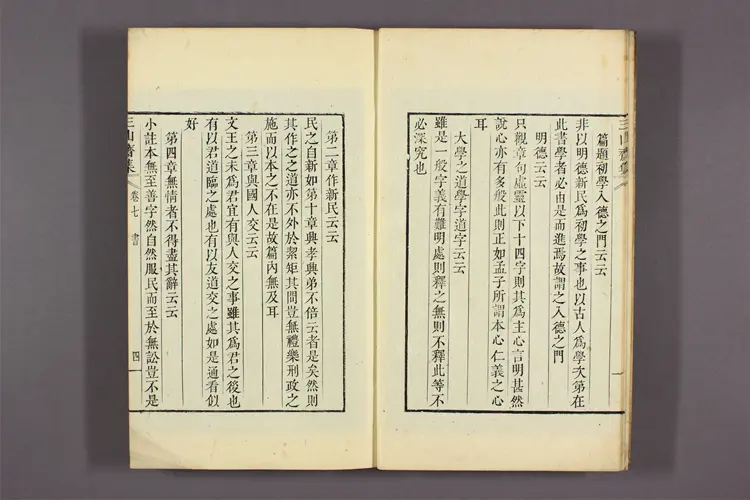 篇題初學入德之門云云
非以明德新民爲初學之事也以古人爲學次第在
此書學者必由是而進焉故謂之入德之門
明德云云
只觀章句虛靈以下十四字則其爲主心言明甚然
說心亦有多般此則正如孟子所謂本心仁義之心
耳
大學之道學字道字云云
雖是一般字義有難明處則釋之無則不釋此等不
必深究也
第二章作新民云云
民之自新如第十章興孝興弟不倍云者是矣然則
其作之之道亦不外於絜矩其間豈無禮樂刑政之
施而以本之不在是故篇內無及耳
第三章與國人交云云
文王之未爲君宜有與人交之事雖其爲君之後也
有以君道臨之處也有以友道交之處如是通看似
好
第四章無情者不得盡其辭云云
小註本無至善字然自然服民而至於無訟豈不是
三山齋集 卷七 書 四